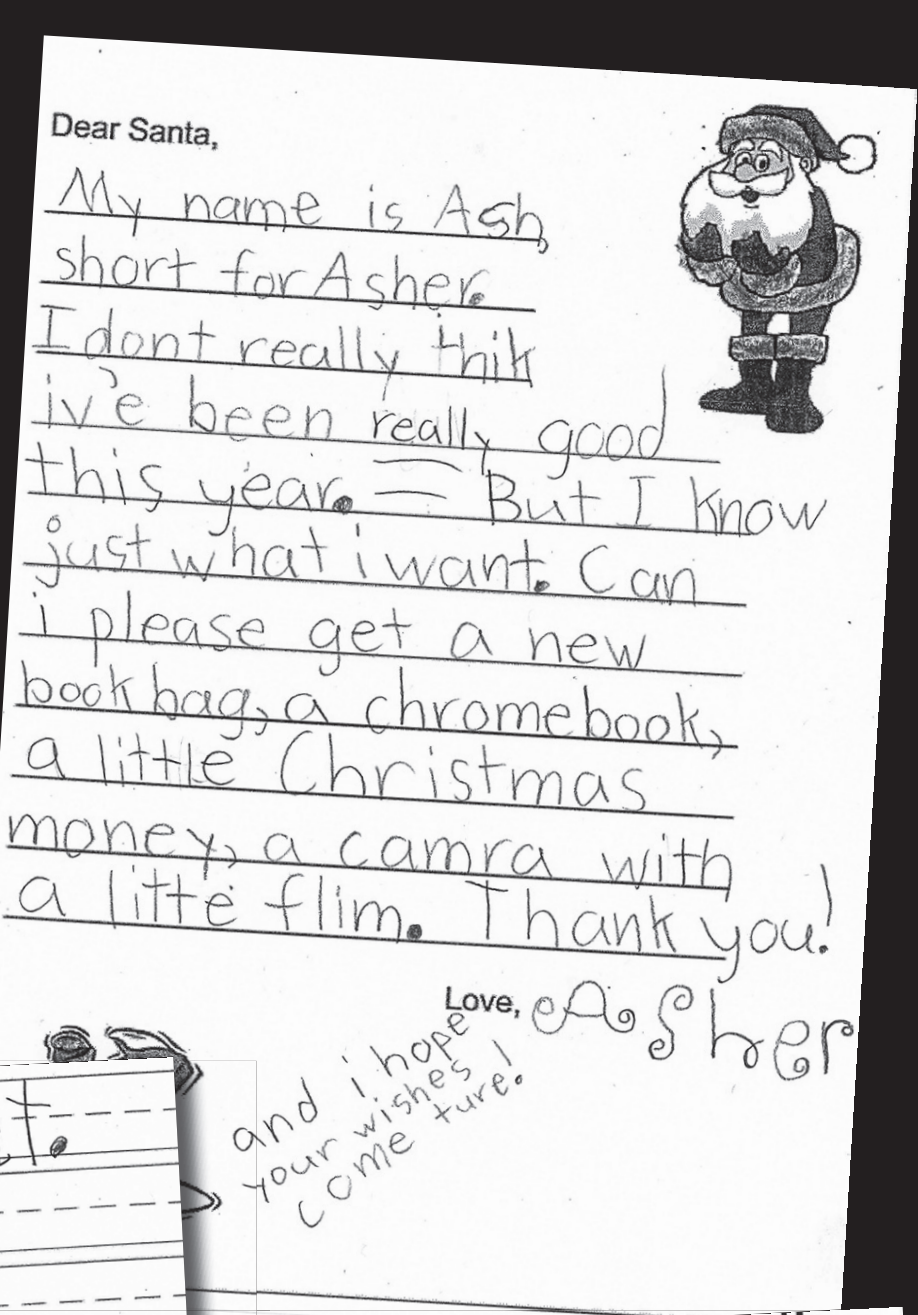 Dear Santa,
My name is Ash,
short for Asher.
I dont really thik
iv'e been really good
this year. But I know
just what i want. Can
i please get a new
bookbag, a chromebook,
a little Christmas
money, a camra with
a litte flim. Thank you!
Love, Asher
and i hope
your wishes
come ture!
t.